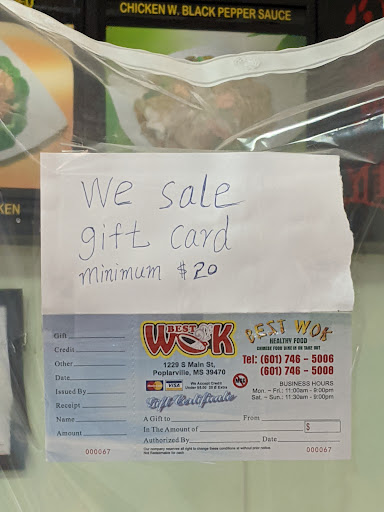 CHICKEN W. BLACK PEPPER SAUCE
KEN
We sale
gift card
minimum $20
Gift
Credit
Other
Date
Issued By
Receipt
Name
Amount
000067
BEST
WOK
1229 S Main St,
Poplarville, MS 39470
MasterCard VISA We Accept Credit
Gift Certificate
BEST WOK
HEALTHY FOOD
CHINESE FOOD DINE IN OR TAKE OUT
Tel: (601) 746 - 5006
(601) 746 - 5008
BUSINESS HOURS
Mon. ~ Fri.: 11:00am - 9:00pm
Sat. ~ Sun.: 11:30am - 9:00pm
A Gift to From
In The Amount of $
Authorized By Date
Our company reserves all right to change these conditions at without prior notice.
Not Redeemable for cash.
000067